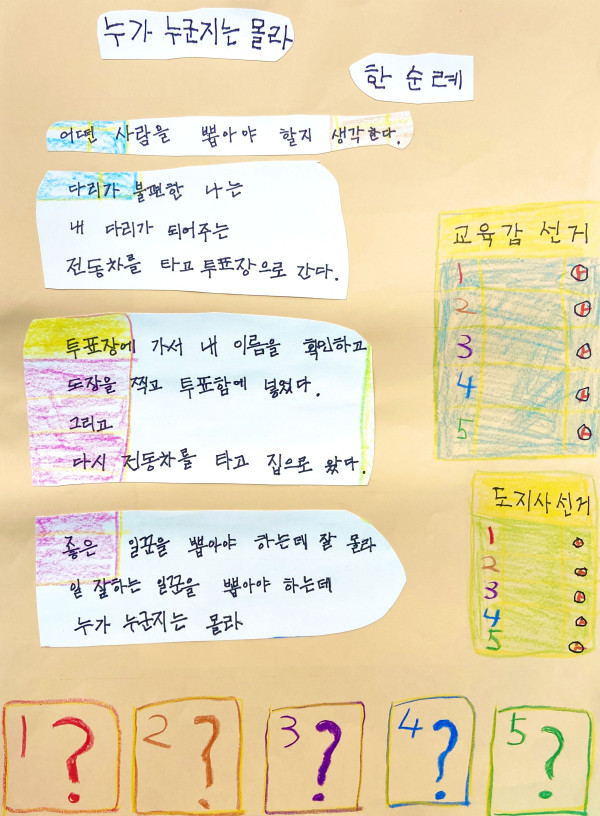 누가 누군지는 몰라
한순례
어떤 사람을 뽑아야 할지 생각한다.
다리가 불편한 나는
내 다리가 되어주는
전동차를 타고 투표장으로 간다.
투표장에 가서 내 이름을 확인하고
도장을 찍고 투표함에 넣었다.
그리고
다시 전동차를 타고 집으로 왔다.
좋은 일꾼을 뽑아야 하는데 잘 몰라
일 잘하는 일꾼을 뽑아야 하는데
누가 누군지는 몰라
교육감 선거
1
2
3
4
5
도지사선거
1
2
3
4
5
1 ? 2 ? 3 ? 4 ? 5 ?